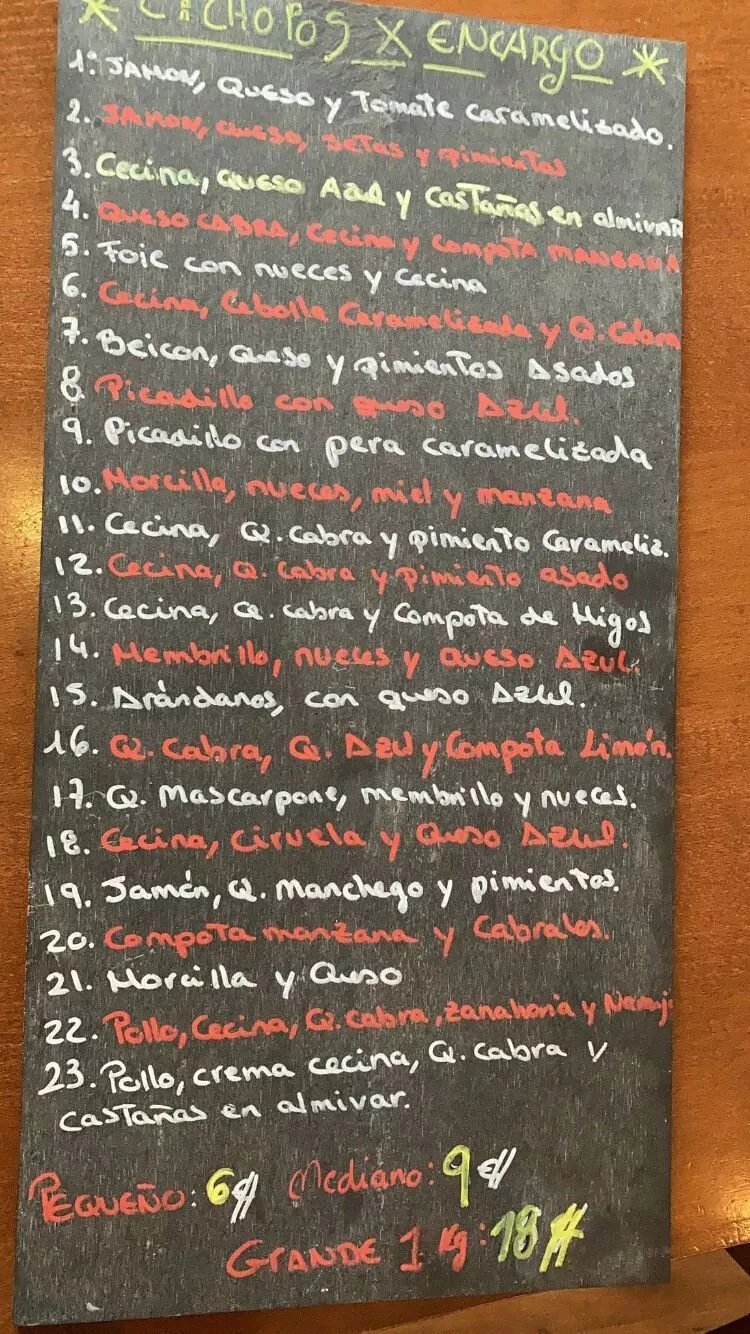 * CACHOPOS X ENCARGO *
1º. JAMON, QUESO y Tomate caramelisado.
2. JAMON, QUESO, SETAS y pimientos
3. Cecina, QUESO Azul y CasTañas en almivar
4. QUESO CABRA, Cecina y CompoTA MANZANA
5. Foie con nueces y Cecina
6. Cecina, Cebolla Caramelizada y Q. Cabra
7. Beicon, Queso y pimientos Asados
8. Picadillo con queso Azul.
9. Picadillo con pera caramelizada
10. Morcilla, nueces, miel y manzana
11. Cecina, Q. Cabra y pimiento Carameliz.
12. Cecina, Q. Cabra y Pimiento asado
13. Cecina, Q. cabra y Compota de Higos
14. Membrillo, nueces y QUESO Azul.
15. Arándanos, con queso Azul.
16. Q. Cabra, Q. Azul y Compota Limón.
17. Q. Mascarpone, membrillo y nueces.
18. Cecina, Ciruela y Queso Azul.
19. Jamón, Q. Manchego y pimientos.
20. CompoTa manzana y Cabrales.
21. Morcilla y Queso
22. Pollo, Cecina, Q. Cabra, Zanahoria y Naranj
23. Pollo, crema cecina, Q. cabra y
CasTañas en almivar.
PEQUEÑO: 6€ Mediano: 9€
GRANDE 1 Kg: 18€